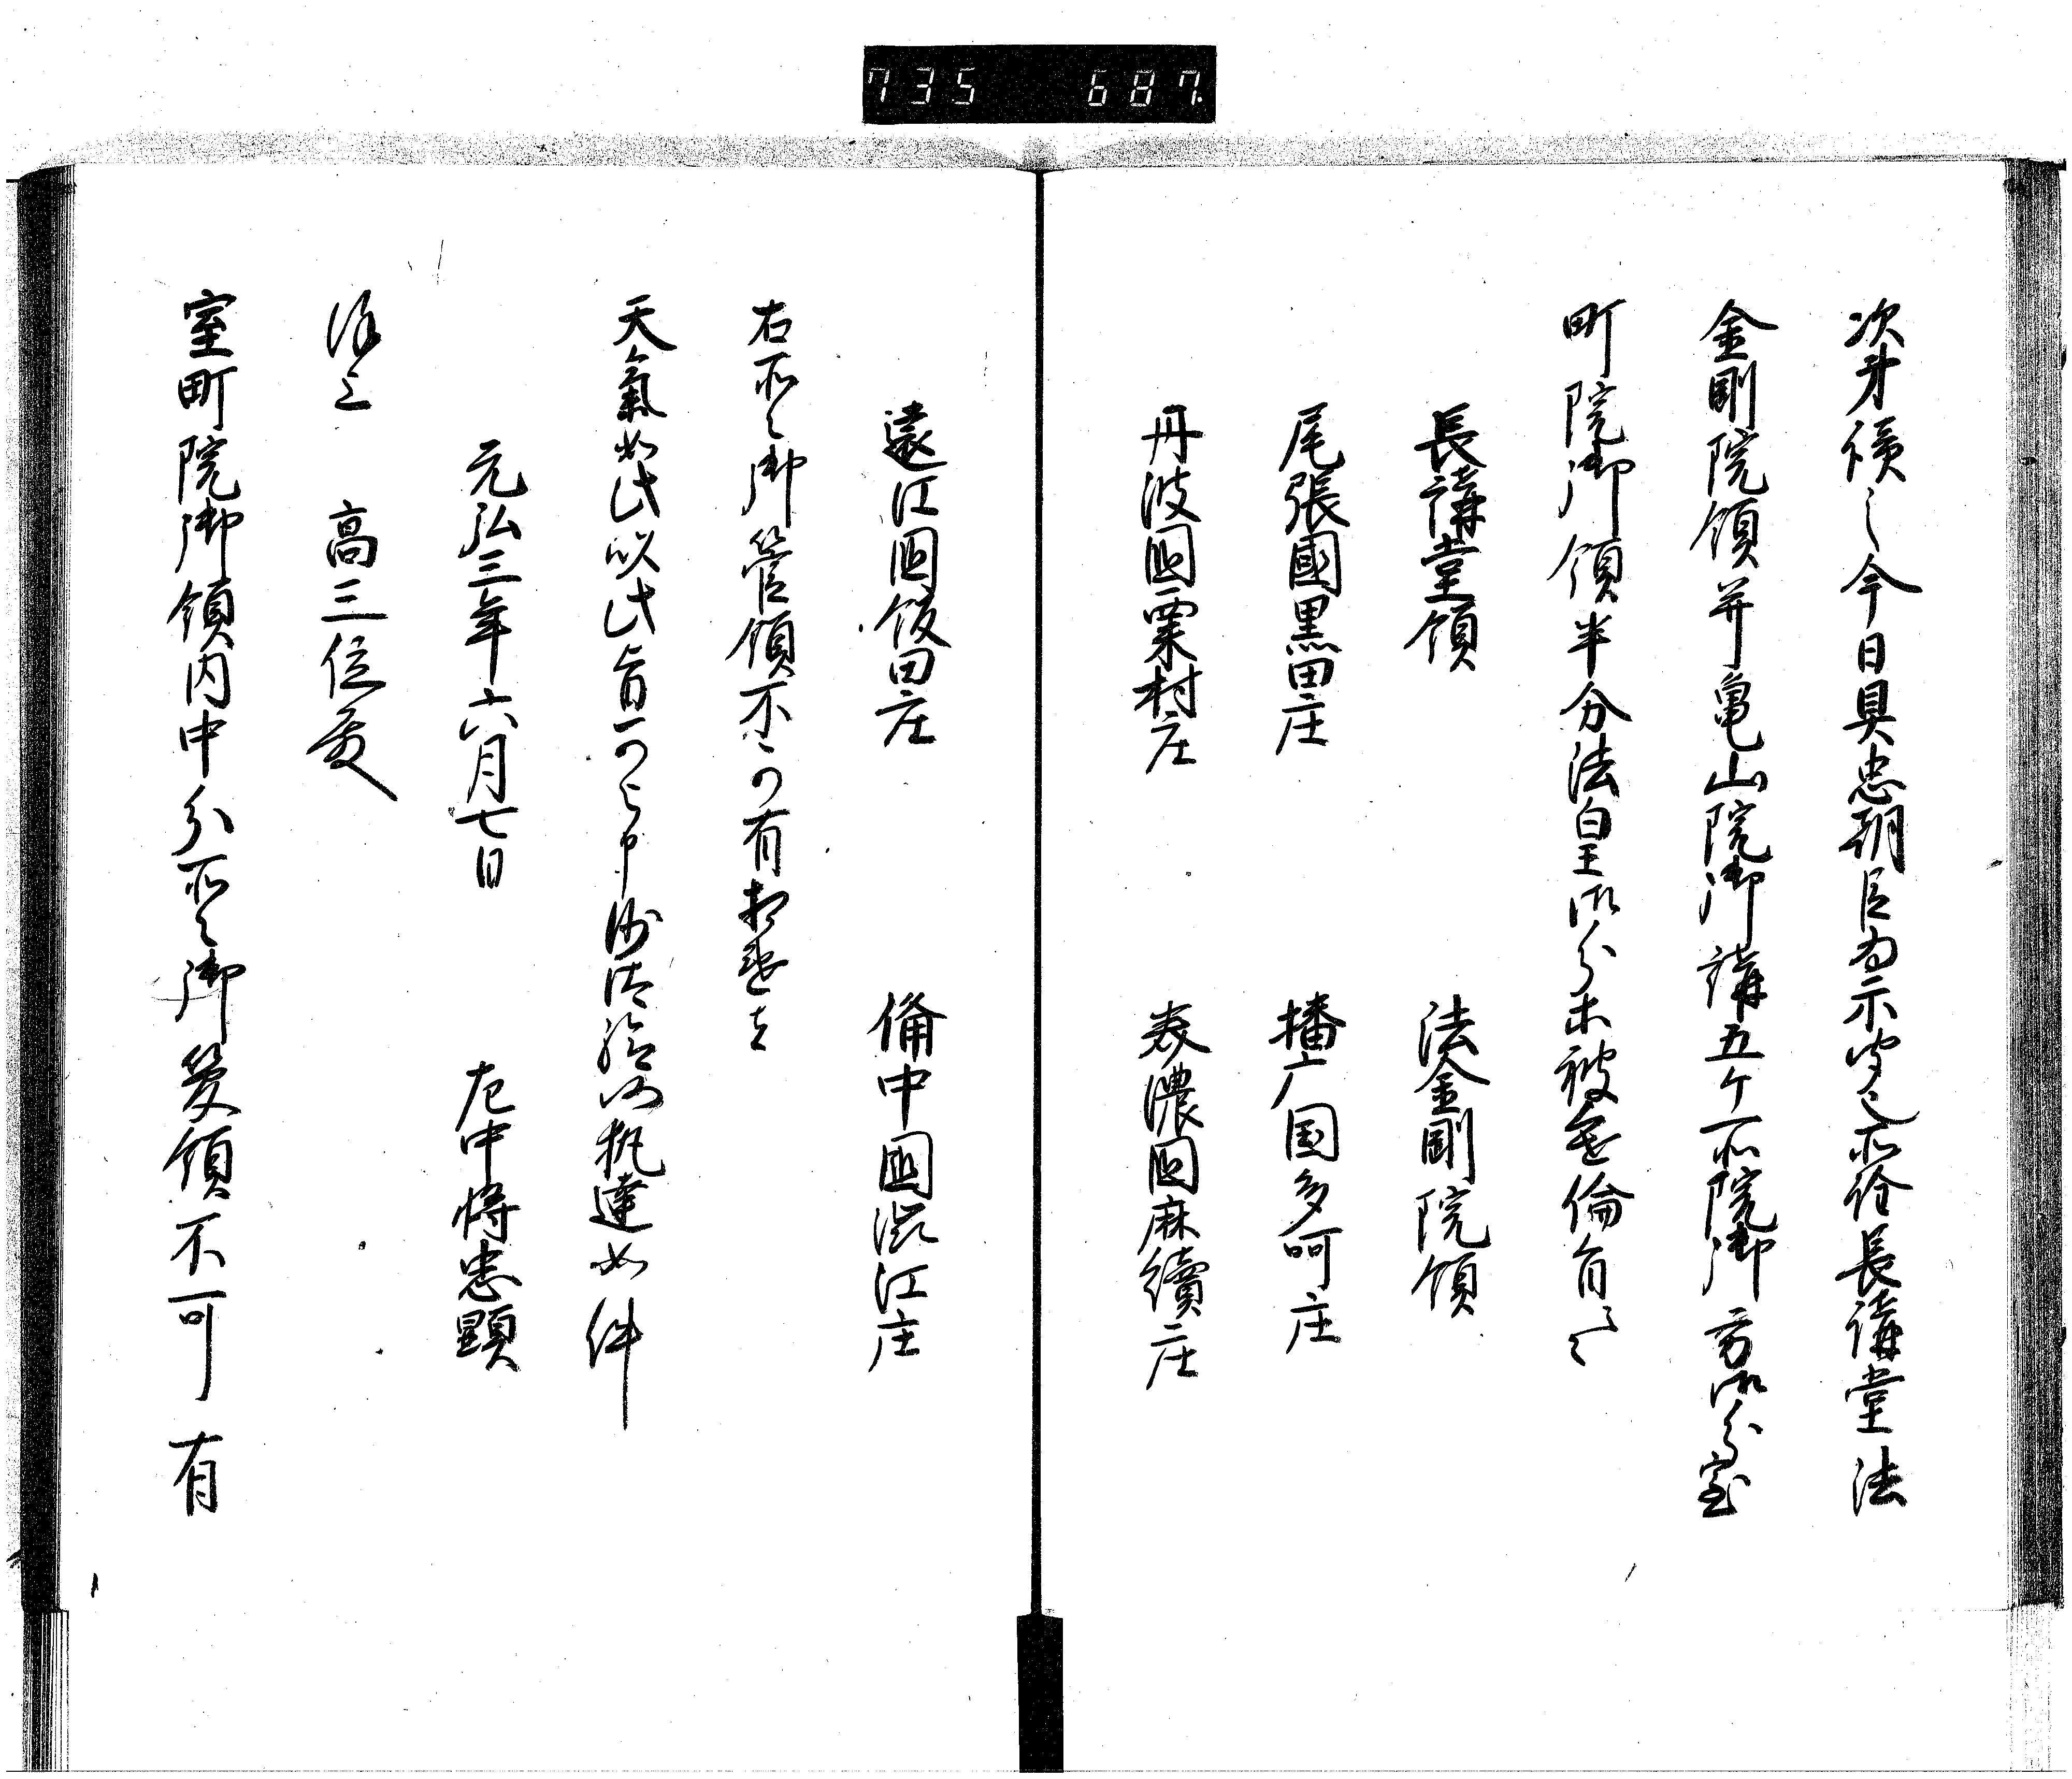 735 687
次第續之今日具忠朝臣為示突之所詮長講堂法
金剛院領并亀山院御講五ケ所院御方御分室
町院御領半分法皇御分未被進倫旨云々
長講堂領 法金剛院領
尾張國黒田庄 播广国多呵庄
丹波國栗村庄 美濃國麻續庄
遠江國飯田庄 備中國渋江庄
右所々御管領不可有相違者
天氣如此以此旨可令申沙汰給仍執達如件
元弘三年六月七日 左中将忠顕
謹上 高三位殿
室町院御領内中分所々御管領不可有